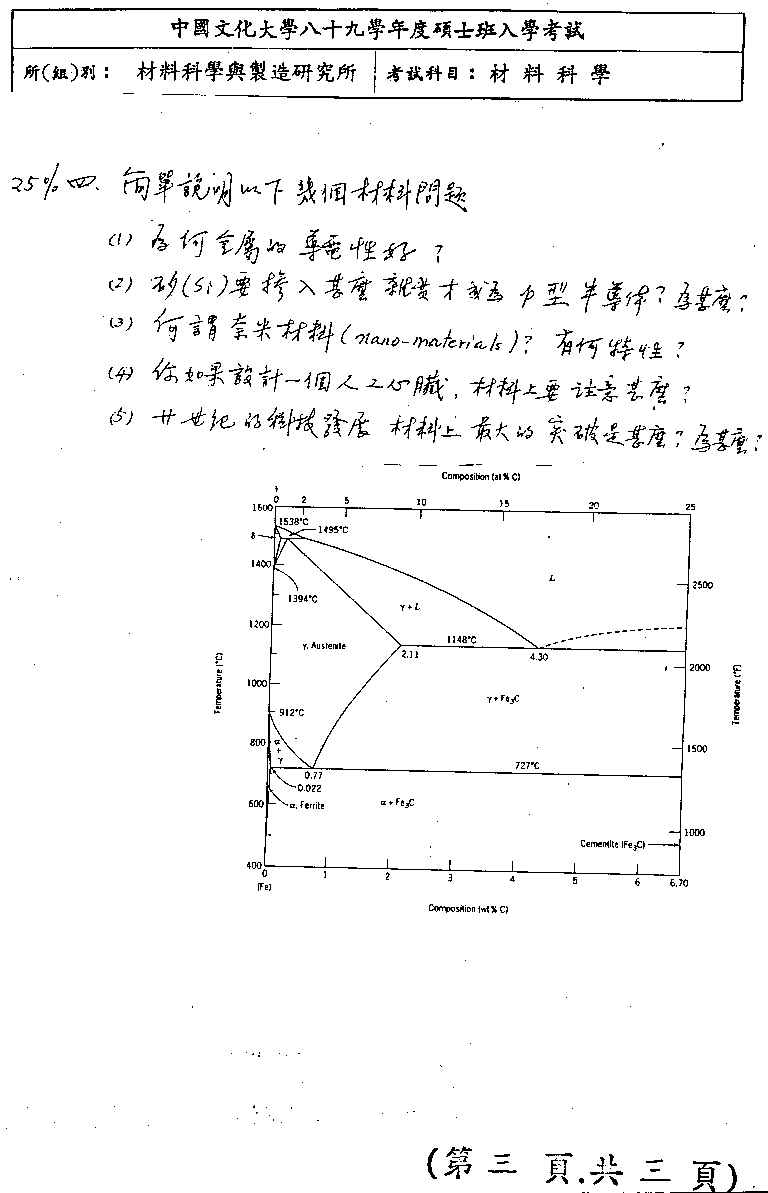 中國文化大學八十九學年度碩士班入學考試
所(組)別： 材料科學與製造研究所 考試科目：材料科學
25% 四、簡單說明以下幾個材料問題
(1) 為何金屬的導電性好？
(2) 矽(Si)要摻入甚麼雜質才成為 p 型半導体？為甚麼？
(3) 何謂奈米材料(nano-materials)？有何特性？
(4) 你如果設計一個人工心臟，材料上要注意甚麼？
(5) 廿世紀的科技發展 材料上最大的突破是甚麼？為甚麼？
Composition (at % C)
0 2 5 10 15 20 25
1600
1538°C
1495°C
δ
1400
1394°C
L
2500
γ + L
1200
1148°C
γ, Austenite
2.11
4.30
2000
Temperature (°C)
Temperature (°F)
1000
γ + Fe₃C
912°C
800
α + γ
1500
727°C
0.77
0.022
600
α, Ferrite
α + Fe₃C
1000
Cementite (Fe₃C)
400
0 1 2 3 4 5 6 6.70
(Fe)
Composition (wt % C)
(第三頁.共三頁)